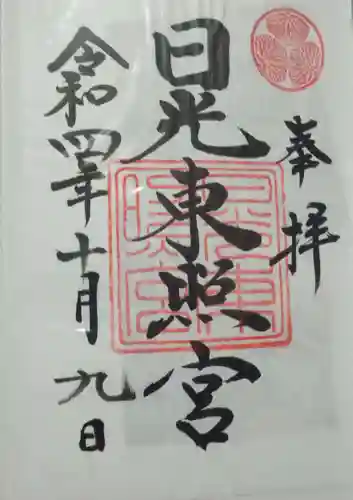 奉拝
日光東照宮
令和四年十月九日